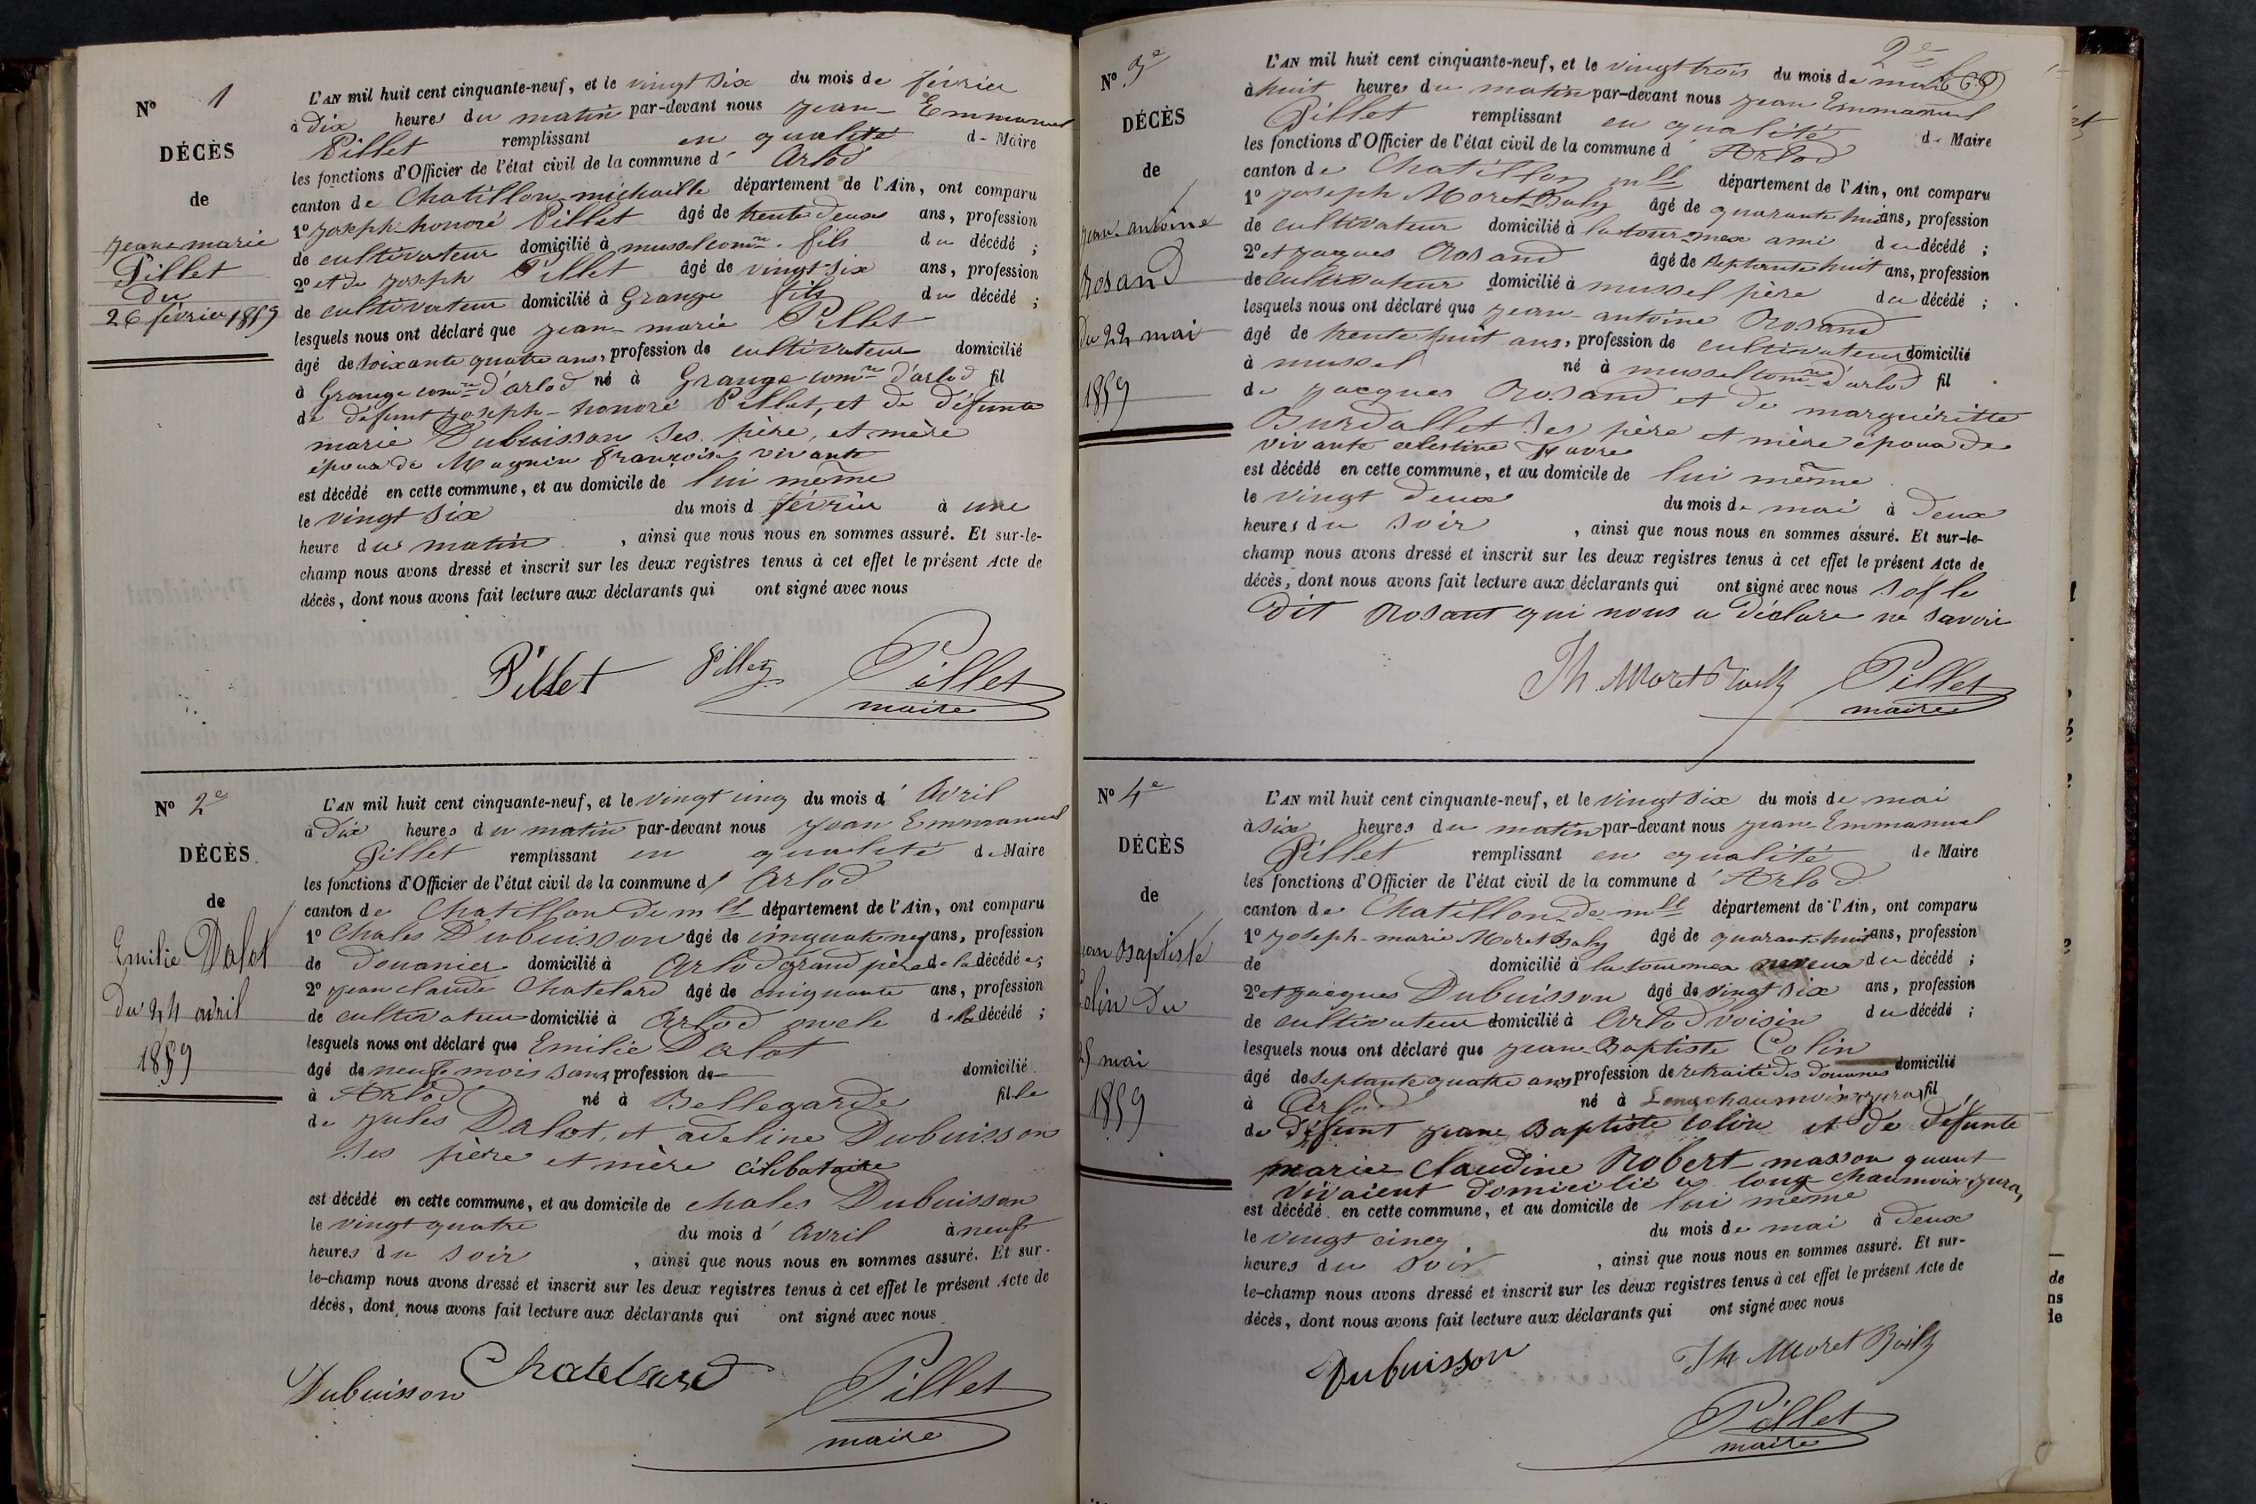 N° 1
DÉCÈS
de
jean marie
Pillet
Du
26 février 1859
L'AN mil huit cent cinquante-neuf, et le vingt six du mois de février
à dix heures du matin par-devant nous jean Emmanuel
Pillet remplissant en qualité de Maire
les fonctions d'Officier de l'état civil de la commune d' Arlod
canton de Chatillon michaille département de l'Ain, ont comparu
1° joseph honoré Pillet âgé de trente deux ans, profession
de cultivateur domicilié à mussel comne fils du décédé ;
2° et de joseph Pillet âgé de vingt-six ans, profession
de cultivateur domicilié à Grange fils du décédé ;
lesquels nous ont déclaré que jean-marie Pillet
âgé de soixante quatre ans, profession de cultivateur domicilié
à Grange comne d'arlod né à Grange comne d'arlod fil
de défunt joseph-honoré Pillet, et de défunte
marie Dubuisson ses père, et mère
époux de Magnin françoise vivante
est décédé en cette commune, et au domicile de lui même
le vingt six du mois d février à une
heure du matin , ainsi que nous nous en sommes assuré. Et sur-le-
champ nous avons dressé et inscrit sur les deux registres tenus à cet effet le présent Acte de
décès, dont nous avons fait lecture aux déclarants qui ont signé avec nous
Pillet Pillet Pillet
maire
N° 2e
DÉCÈS
de
Emilie Dalot
Du 24 avril
1859
L'AN mil huit cent cinquante-neuf, et le vingt cinq du mois d' Avril
à dix heures du matin par-devant nous jean Emmanuel
Pillet remplissant en qualité de Maire
les fonctions d'Officier de l'état civil de la commune d' Arlod
canton de Chatillon de mlle département de l'Ain, ont comparu
1° Chales Dubuisson âgé de cinquante neuf ans, profession
de douanier domicilié à Arlod grand père de la décédée ;
2° jean claude Chatelard âgé de cinquante ans, profession
de cultivateur domicilié à Arlod oncle de la décédé ;
lesquels nous ont déclaré que Emilie Dalot
âgé de neuf mois sans profession de domicilié
à Arlod né à Bellegarde fille
de jules Dalot, et adeline Dubuisson
ses père et mère célibataire
est décédé en cette commune, et au domicile de chales Dubuisson
le vingt quatre du mois d' Avril à neuf
heures du soir , ainsi que nous nous en sommes assuré. Et sur-
le-champ nous avons dressé et inscrit sur les deux registres tenus à cet effet le présent Acte de
décès, dont nous avons fait lecture aux déclarants qui ont signé avec nous
Dubuisson Chatelard Pillet
maire
2e
N° 3e
DÉCÈS
de
jean antoine
Rosand
Du 22 mai
1859
L'AN mil huit cent cinquante-neuf, et le vingt trois du mois de mai
à huit heures du matin par-devant nous jean Emmanuel
Pillet remplissant en qualité de Maire
les fonctions d'Officier de l'état civil de la commune d' Arlod
canton de Chatillon mlle département de l'Ain, ont comparu
1° joseph Moret Baly âgé de quarante huit ans, profession
de cultivateur domicilié à la tour mex ami du décédé ;
2° et jacques Rosand âgé de septante huit ans, profession
de cultivateur domicilié à mussel père du décédé ;
lesquels nous ont déclaré que jean-antoine Rosand
âgé de trente huit ans, profession de cultivateur domicilié
à mussel né à mussel comne d'arlod fil
de jacques Rosand et de marguéritte
Burdallet ses père et mère époux de
vivante celestine favre
est décédé en cette commune, et au domicile de lui même
le vingt deux du mois de mai à deux
heures du soir , ainsi que nous nous en sommes assuré. Et sur-le-
champ nous avons dressé et inscrit sur les deux registres tenus à cet effet le présent Acte de
décès, dont nous avons fait lecture aux déclarants qui ont signé avec nous sof le
Dit Rosant qui nous a déclare ne savoir
Jh Moret Pillet
maire
N° 4e
DÉCÈS
de
jean Baptiste
Colin Du
25 mai
1859
L'AN mil huit cent cinquante-neuf, et le vingt six du mois de mai
à six heures du matin par-devant nous jean Emmanuel
Pillet remplissant en qualité de Maire
les fonctions d'Officier de l'état civil de la commune d' Arlod
canton de Chatillon de mlle département de l'Ain, ont comparu
1° joseph-marie Moret Baly âgé de quarante huit ans, profession
de domicilié à la tour mex neveux du décédé ;
2° et jacques Dubuisson âgé de vingt six ans, profession
de cultivateur domicilié à Arlod voisin du décédé ;
lesquels nous ont déclaré que jean-Baptiste Colin
âgé de septante quatre ans profession de retraité des douanes domicilié
à Arlod né à Longchaumoix jura fil
de défunt jean Baptiste Colin et de défunte
marie claudine Robert-masson quant
vivaient domicilié à long-chaumoix jura,
est décédé en cette commune, et au domicile de lui même
le vingt cinq du mois de mai à deux
heures du soir , ainsi que nous nous en sommes assuré. Et sur-
le-champ nous avons dressé et inscrit sur les deux registres tenus à cet effet le présent Acte de
décès, dont nous avons fait lecture aux déclarants qui ont signé avec nous
Dubuisson Jh Moret Baily
Pillet
maire